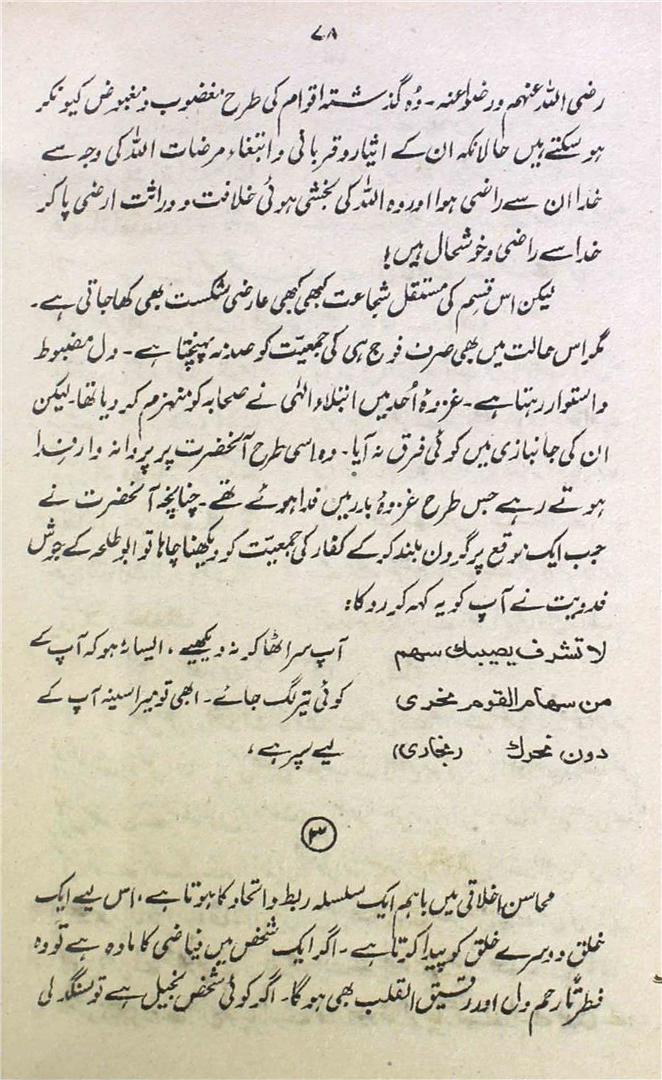 ۷۸
رضی اللہ عنہم و رضوا عنہ۔ وہ گذشتہ اقوام کی طرح مغضوب و مبغوض کیونکر
ہو سکتے ہیں حالانکہ ان کے ایثار و قربانی و ابتغاء مرضات اللہ کی وجہ سے
خدا ان سے راضی ہوا اور وہ اللہ کی بخشی ہوئی خلافت و وراثت ارضی پا کر
خدا سے راضی و خوشحال ہیں!
لیکن اس قسم کی مستقل شجاعت کبھی کبھی عارضی شکست بھی کھا جاتی ہے۔
مگر اس حالت میں بھی صرف فوج ہی کی جمعیّت کو صدمہ پہنچتا ہے۔ دل مضبوط
و استوار رہتا ہے۔ غزوۂ اُحد میں ابتلاء الٰہی نے صحابہ کو منہزم کر دیا تھا۔ لیکن
ان کی جانبازی میں کوئی فرق نہ آیا۔ وہ اسی طرح آنحضرت پر پروانہ وار فدا
ہوتے رہے جس طرح غزوۂ بدر میں فدا ہوئے تھے۔ چنانچہ آنحضرت نے
جب ایک موقع پر گردن بلند کر کے کفار کی جمعیّت کو دیکھنا چاہا تو ابو طلحہ کے جوش
فدویت نے آپ کو یہ کہہ کر روکا:
لا تشرف یصیبک سھم آپ سر اٹھا کر نہ دیکھیے، ایسا نہ ہو کہ آپ کے
من سھام القوم نحری کوئی تیر لگ جائے۔ ابھی تو میرا سینہ آپ کے
دون نحرک (بخاری) لیے سپر ہے،
۳
محاسن اخلاقی میں باہم ایک سلسلہ ربط و اتحاد کا ہوتا ہے، اس لیے ایک
خلق دوسرے خلق کو پیدا کرتا ہے۔ اگر ایک شخص میں فیاضی کا مادہ ہے تو وہ
فطرتًا رحم دل اور رقیق القلب بھی ہوگا۔ اگر کوئی شخص بخیل ہے تو سنگدلی